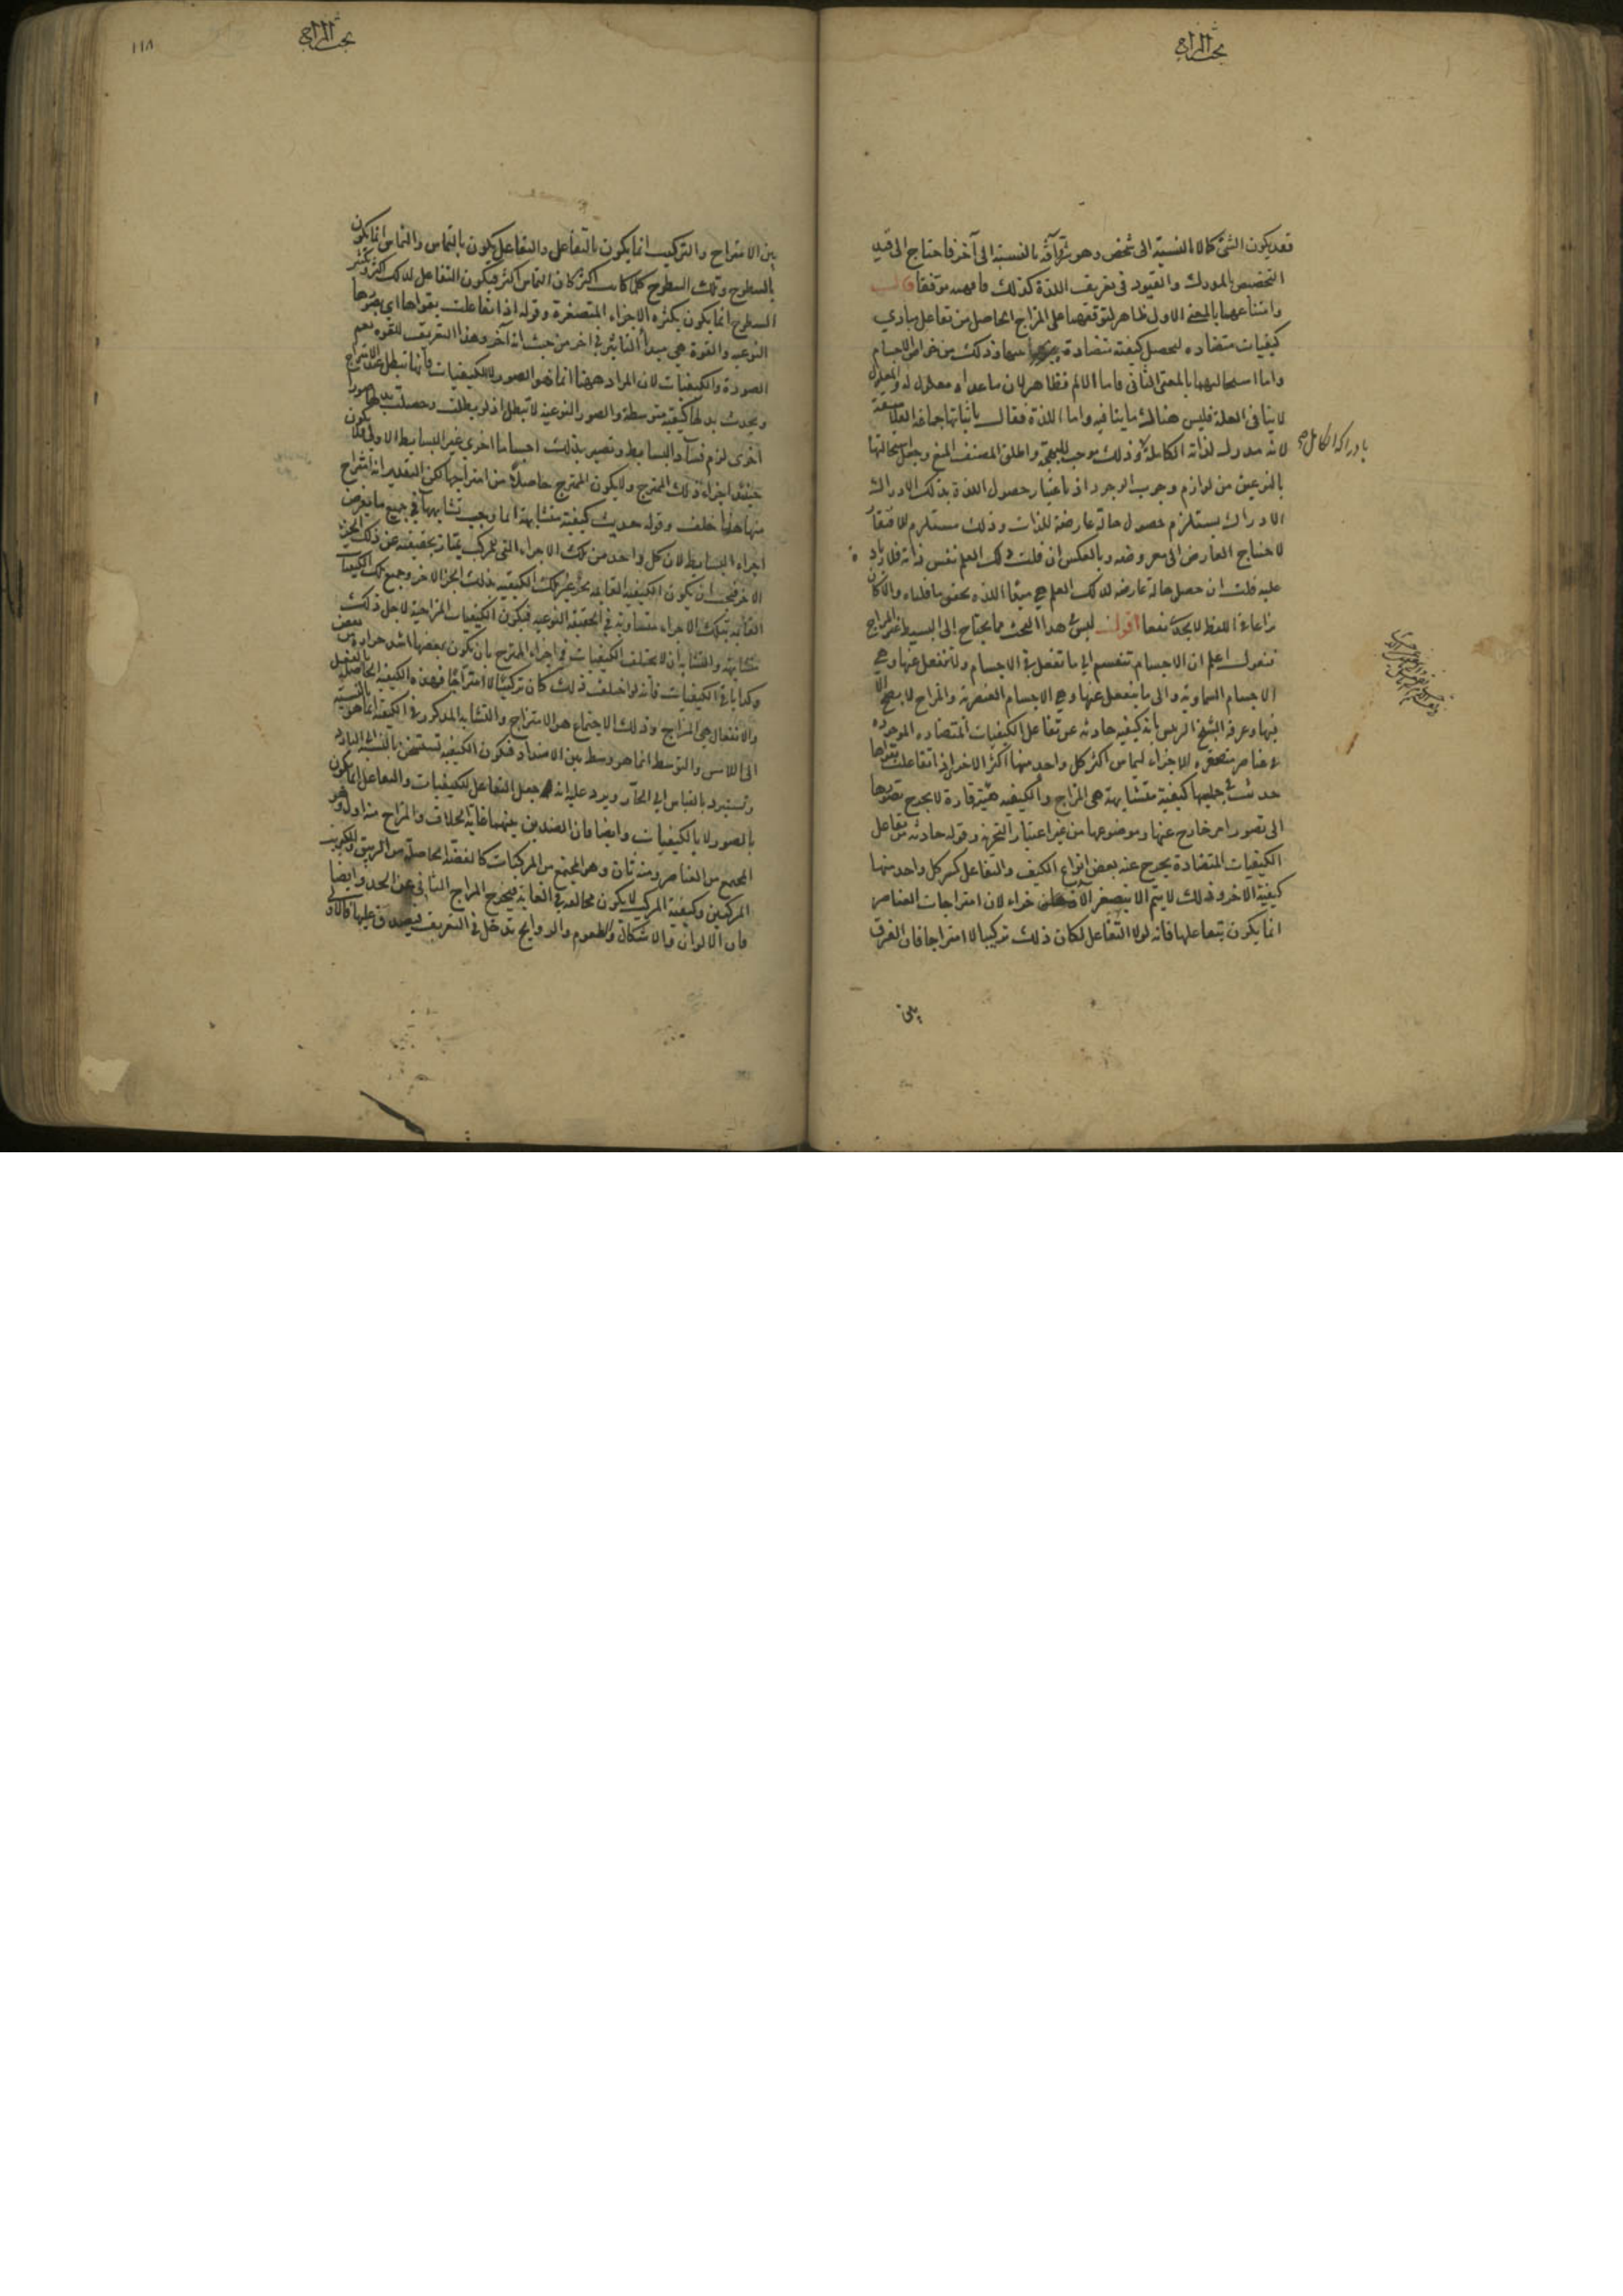 بحث المزاج
فقد يكون الشئ كمالا بالنسبة الى شخص وهو شر وآفة بالنسبة الى آخر فاحتاج الى قيد
التخصيص بالمدرك والقيود فى تعريف اللذة كذلك فافهمه موفقا قال
وامتناعهما بالمعنى الاول ظاهر لتوقفهما على المزاج الحاصل من تفاعل مبادي
كيفيات متضاده لتحصيل كيفية متضادة وذلك من خواص الاجسام
واما استحالتهما بالمعنى الثانى فاما الالم فظاهر لان ما عداه معلول له والمعلول
لا ينافى العلة فليس هناك ما ينافيه واما اللذة فقال باثباتها جماعة الفلاسفة
لانه مدرك لذاته الكاملة وذلك موجب للبهجة واطلق المصنف المنع وجعل استحالتها
بادراكه الكامل
بالنوعين من لوازم وجوب الوجود اذ باعتبار حصول اللذة بذلك الادراك
الادراك يستلزم حصول حالة عارضة للذات وذلك مستلزم للافتقار
لاحتياج العارض الى معروضه وبالعكس ان قلت ذلك العلم نفس ذاته فلا زيادة
عليه قلت ان حصل حالة عارضه لذلك العلم هي مبدأ اللذه تحقق ما قلناه والا كان
مراعاة اللفظ لا يجدى نفعا اقول ليس هذا البحث مما يحتاج الى البسيط غير المزاج
فنقول اعلم ان الاجسام تنقسم الى ما تفعل فى الاجسام ولا تنفعل عنها وهي
الاجسام السماويه والى ما ينفعل عنها وهي الاجسام العنصرية والمزاج لا يصح الا
فيها وعرفه الشيخ الرئيس بانه كيفيه حادثه عن تفاعل الكيفيات المتضاده الموجوده
فى عناصر متصغره الاجزاء ليماس اكثر كل واحد منها اكثر الاخر اذا تفاعلت بقواها
حدثت فى جملتها كيفية متشابهة هى المزاج والكيفيه هيئة قارة لا يحوج تصورها
الى تصور امر خارج عنها وموضوعها من غير اعتبار التحيز وقوله حادثه من تفاعل
الكيفيات المتضادة يخرج عنه بعض انواع الكيف والتفاعل كسر كل واحد منها
كيفية الاخر وذلك لا يتم الا بتصغر الاجزاء لان امتزاجات العناصر
انما يكون بتفاعلها فانه لولا التفاعل لكان ذلك تركيبا لا امتزاجا فان الفرق
بين
بحث المزاج
١١٨
بين الامتزاج والتركيب انما يكون بالتفاعل والتفاعل يكون بالتماس والتماس انما يكون
بالسطوح وتلك السطوح كلما كانت اكثر كان التماس اكثر فيكون التفاعل لذلك اكثر وتكثر
السطوح انما يكون بكثره الاجزاء المتصغرة وقوله اذا تفاعلت بقواها اى بصورها
النوعيه والقوة هى مبدأ التاثير فى اخر من حيث انه آخر وهذا التعريف للقوه يعم
الصورة والكيفيات لان المراد ههنا انما هو الصور لا الكيفيات فانها تبطل عند الامتزاج
ويحدث بدلها كيفية متوسطة والصور النوعية لا تبطل اذ لو بطلت وحصلت بدلها صورا
اخرى لزم فساد البسايط وتصير بذلك اجساما اخرى غير البسايط الاولى فلا يكون
حينئذ اجزاء ذلك الممتزج ولا يكون الممتزج حاصلا من امتزاجها لكن التقدير انه امتزاج
منها هذا خلف وقوله حدثت كيفية متشابهة انما وجب تشابهها فى جميع ما يفرض
اجزاء البسايط لان كل واحد من تلك الاجزاء التى للمركب يمتاز بحقيقته عن ذلك الجزء
الاخر فيجب ان يكون الكيفية القايمه بجزء غير تلك الكيفيه بذلك الجزء الاخر وجميع تلك الكيفيات
القايمه بتلك الاجزاء متساوية فى الحقيقة النوعيه فيكون الكيفيات المزاجية لاجل ذلك
متشابهة والتشابه ان لا تختلف الكيفيات فى اجزاء الممتزج بان تكون بعضها اشد حرارة من بعض
وكذا باقى الكيفيات فانه لو اختلفت ذلك كان تركيبا لا امتزاجا فهذه الكيفية الحاصلة بالفعل
والانفعال هى المزاج وذلك الاجتماع هو الامتزاج والتشابه المذكور فى الكيفية انما هو بالنسبة
الى اللامس والتوسط انما هو وسط بين الاضداد فتكون الكيفية تستسخن بالنسبة الى البارد
وتستبرد بالقياس الى الحار ويرد عليه انه جعل التفاعل للكيفيات والتفاعل انما يكون
بالصور لا بالكيفيات وايضا فان الضدين بينهما غاية الخلاف والمزاج منه اول وهو
المجتمع من العناصر ومنه ثان وهو المجتمع من المركبات كالفضة الحاصلة من الزيبق والكبريت
المركبين وكيفية المركب لا يكون مخالفه فى الغاية فيخرج المزاج الثانى عن الحد وايضا
فان الالوان والاشكال والطعوم والروايح تدخل فى التعريف فيصدق عليها فالاولى